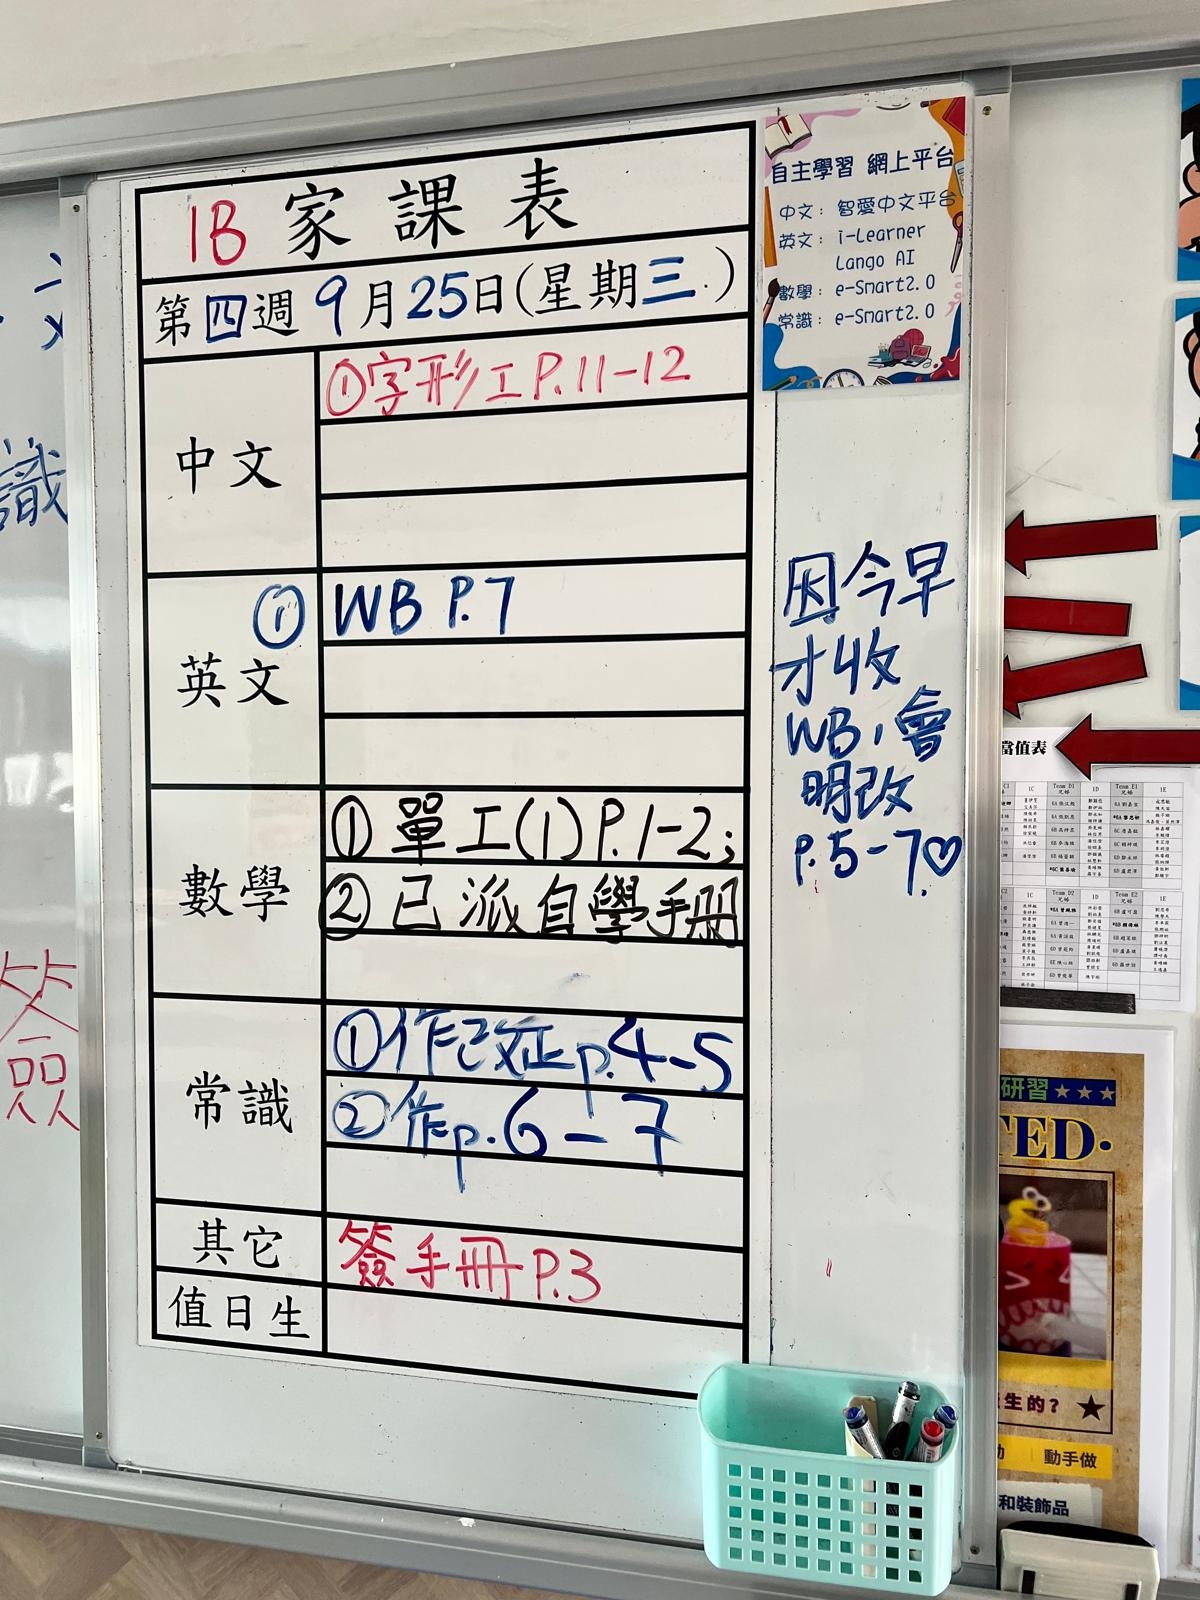 1B 家課表
第四週 9月25日(星期三)
中文
①字形工P.11-12
英文
① WB P.7
數學
① 單工(1)P.1-2;
② 已派自學手冊
常識
①作改正p.4-5
②作p.6-7
其它
簽手冊P.3
值日生
自主學習 網上平台
中文: 智愛中文平台
英文: i-Learner
Lango AI
數學: e-Smart2.0
常識: e-Smart2.0
因今早
才收
WB,會
明改
P.5-7.♡
識
簽
當值表
1C
Team D1
1D
Team E1
1E
Team D2
1D
Team E2
1E
研習★★★
TED·
生的?★
動手做
和裝飾品